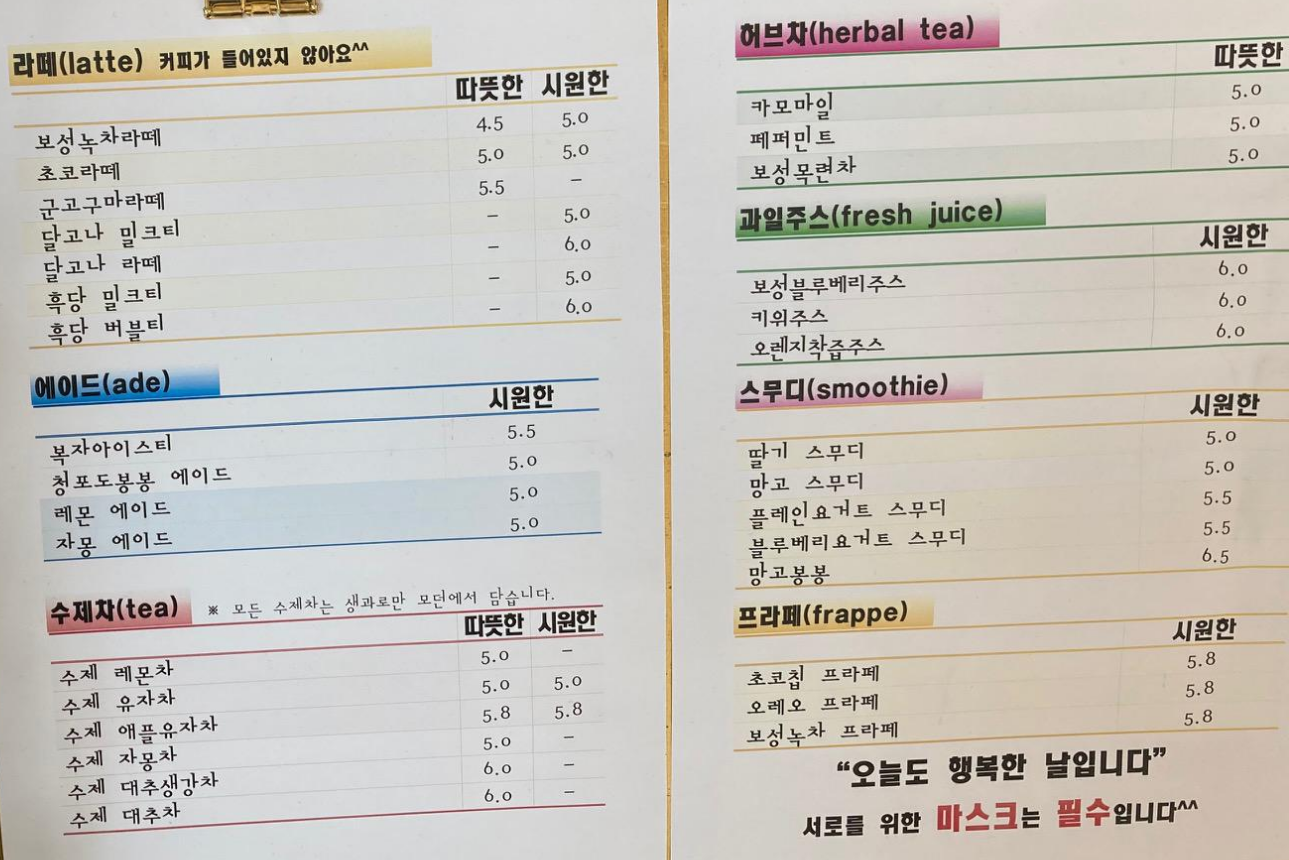 라떼(latte) 커피가 들어있지 않아요^^
따뜻한 시원한
보성녹차라떼 4.5 5.0
초코라떼 5.0 5.0
군고구마라떼 5.5 –
달고나 밀크티 – 5.0
달고나 라떼 – 6.0
흑당 밀크티 – 5.0
흑당 버블티 – 6.0
에이드(ade)
시원한
복자아이스티 5.5
청포도봉봉 에이드 5.0
레몬 에이드 5.0
자몽 에이드 5.0
수제차(tea) ※ 모든 수제차는 생과로만 모던에서 담습니다.
따뜻한 시원한
수제 레몬차 5.0 –
수제 유자차 5.0 5.0
수제 애플유자차 5.8 5.8
수제 자몽차 5.0 –
수제 대추생강차 6.0 –
수제 대추차 6.0 –
허브차(herbal tea)
따뜻한
카모마일 5.0
페퍼민트 5.0
보성목련차 5.0
과일주스(fresh juice)
시원한
보성블루베리주스 6.0
키위주스 6.0
오렌지착즙주스 6.0
스무디(smoothie)
시원한
딸기 스무디 5.0
망고 스무디 5.0
플레인요거트 스무디 5.5
블루베리요거트 스무디 5.5
망고봉봉 6.5
프라페(frappe)
시원한
초코칩 프라페 5.8
오레오 프라페 5.8
보성녹차 프라페 5.8
“오늘도 행복한 날입니다”
서로를 위한 마스크는 필수입니다^^